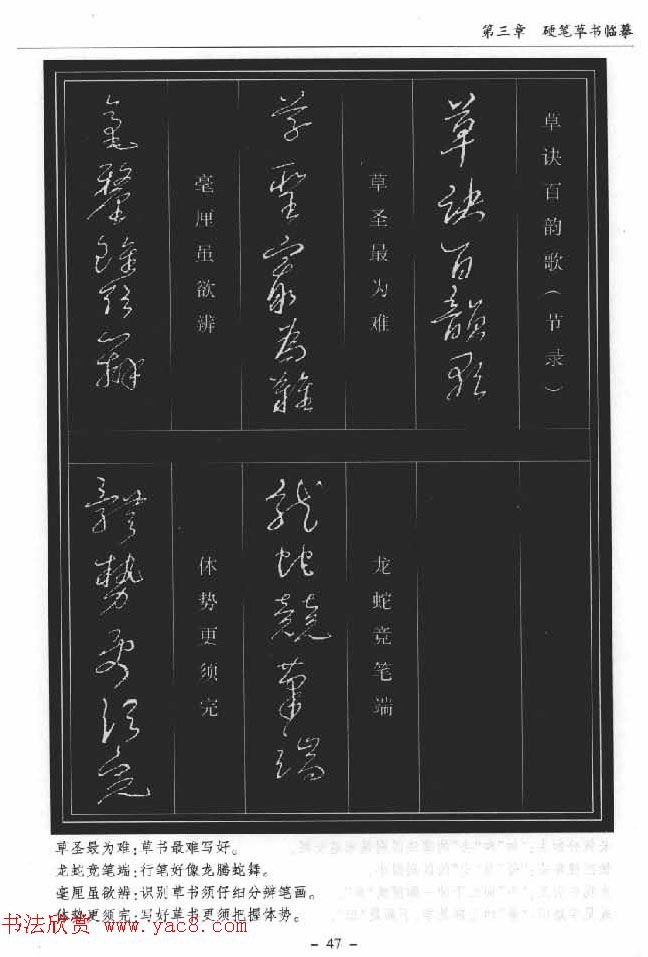 第三章 硬笔草书临摹
草诀百韵歌（节录）
草诀百韵歌
草圣最为难
草圣最为难
龙蛇竞笔端
龙蛇竞笔端
毫厘虽欲辨
毫釐雖欲辨
体势更须完
體勢更須完
草圣最为难：草书最难写好。
龙蛇竞笔端：行笔好像龙腾蛇舞。
毫厘虽欲辨：识别草书须仔细分辨笔画。
体势更须完：写好草书更须把握体势。
书法欣赏 www.yac8.com
- 47 -